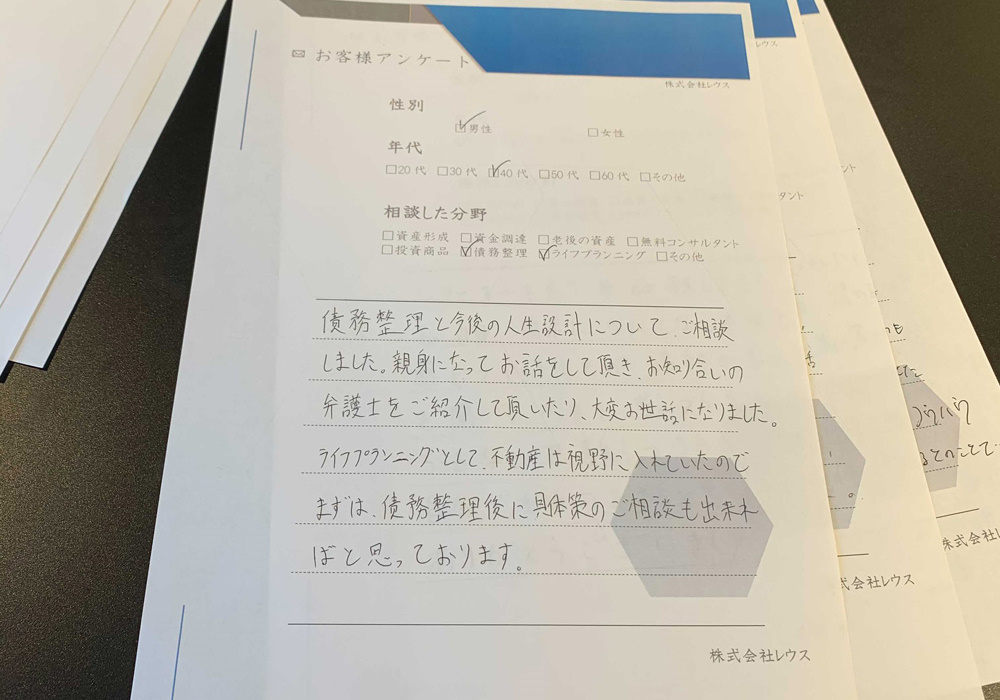 お客様アンケート
株式会社レウス
性別
男性 女性
年代
20代 30代 40代 50代 60代 その他
相談した分野
資産形成 資金調達 老後の資産 無料コンサルタント
投資商品 債務整理 ライフプランニング その他
債務整理と今後の人生設計について、ご相談
しました。親身になってお話をして頂き、お知り合いの
弁護士をご紹介して頂いたり、大変お世話になりました。
ライフプランニングとして、不動産は視野に入れていたので
まずは、債務整理後に具体策のご相談も出来れ
ばと思っております。
株式会社レウス
レウス
ント
タント
話
式会社レウス
とのことで
株式会社レ